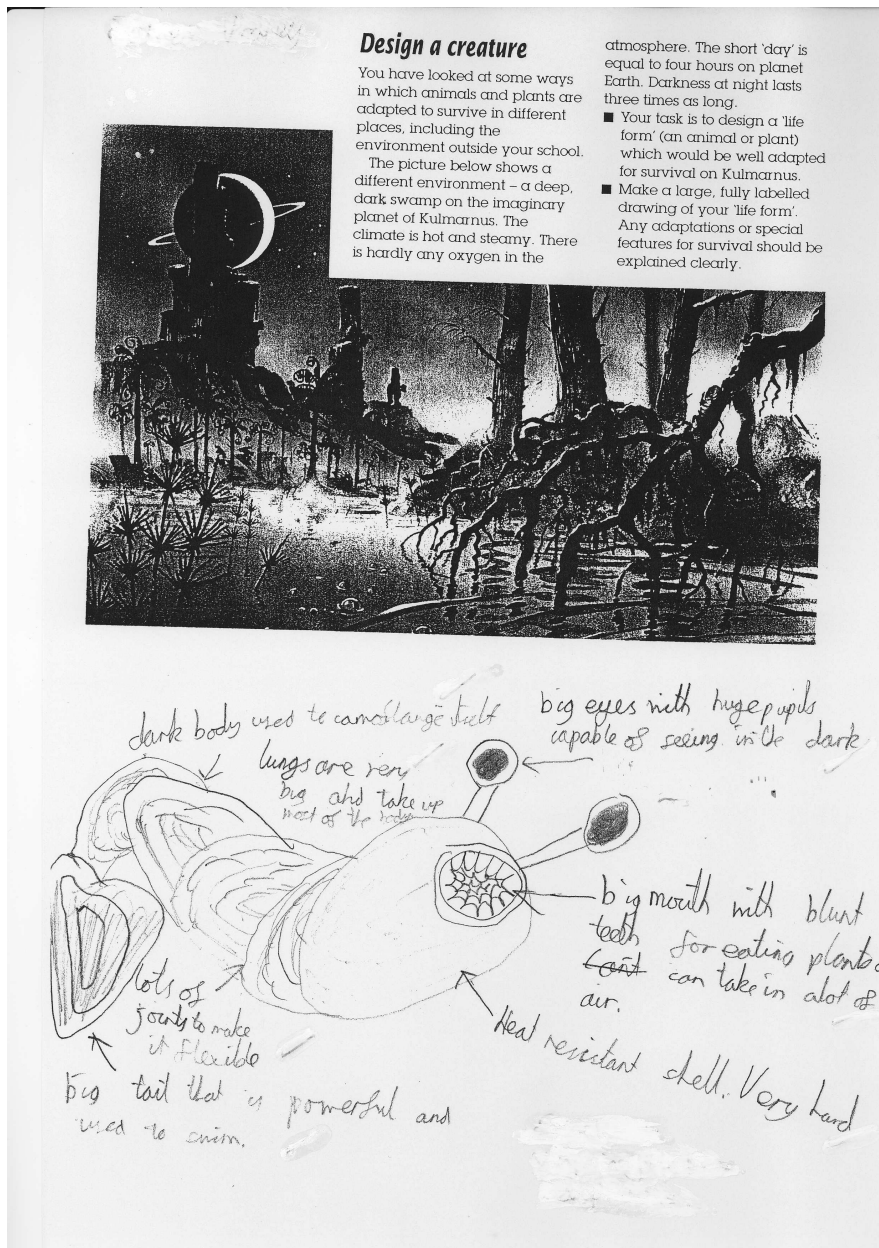 Design a creature
You have looked at some ways
in which animals and plants are
adapted to survive in different
places, including the
environment outside your school.
The picture below shows a
different environment – a deep,
dark swamp on the imaginary
planet of Kulmarnus. The
climate is hot and steamy. There
is hardly any oxygen in the
atmosphere. The short ‘day’ is
equal to four hours on planet
Earth. Darkness at night lasts
three times as long.
■ Your task is to design a ‘life
form’ (an animal or plant)
which would be well adapted
for survival on Kulmarnus.
■ Make a large, fully labelled
drawing of your ‘life form’.
Any adaptations or special
features for survival should be
explained clearly.
dark body used to camoflange itself
big eyes with huge pupils
capable of seeing in the dark
lungs are very
big and take up
most of the body
big mouth with blunt
teeth for eating plants
can't can take in alot of
air.
lots of
joints to make
it flexible
Heat resistant shell. Very hard
big tail that is powerful and
used to swim.